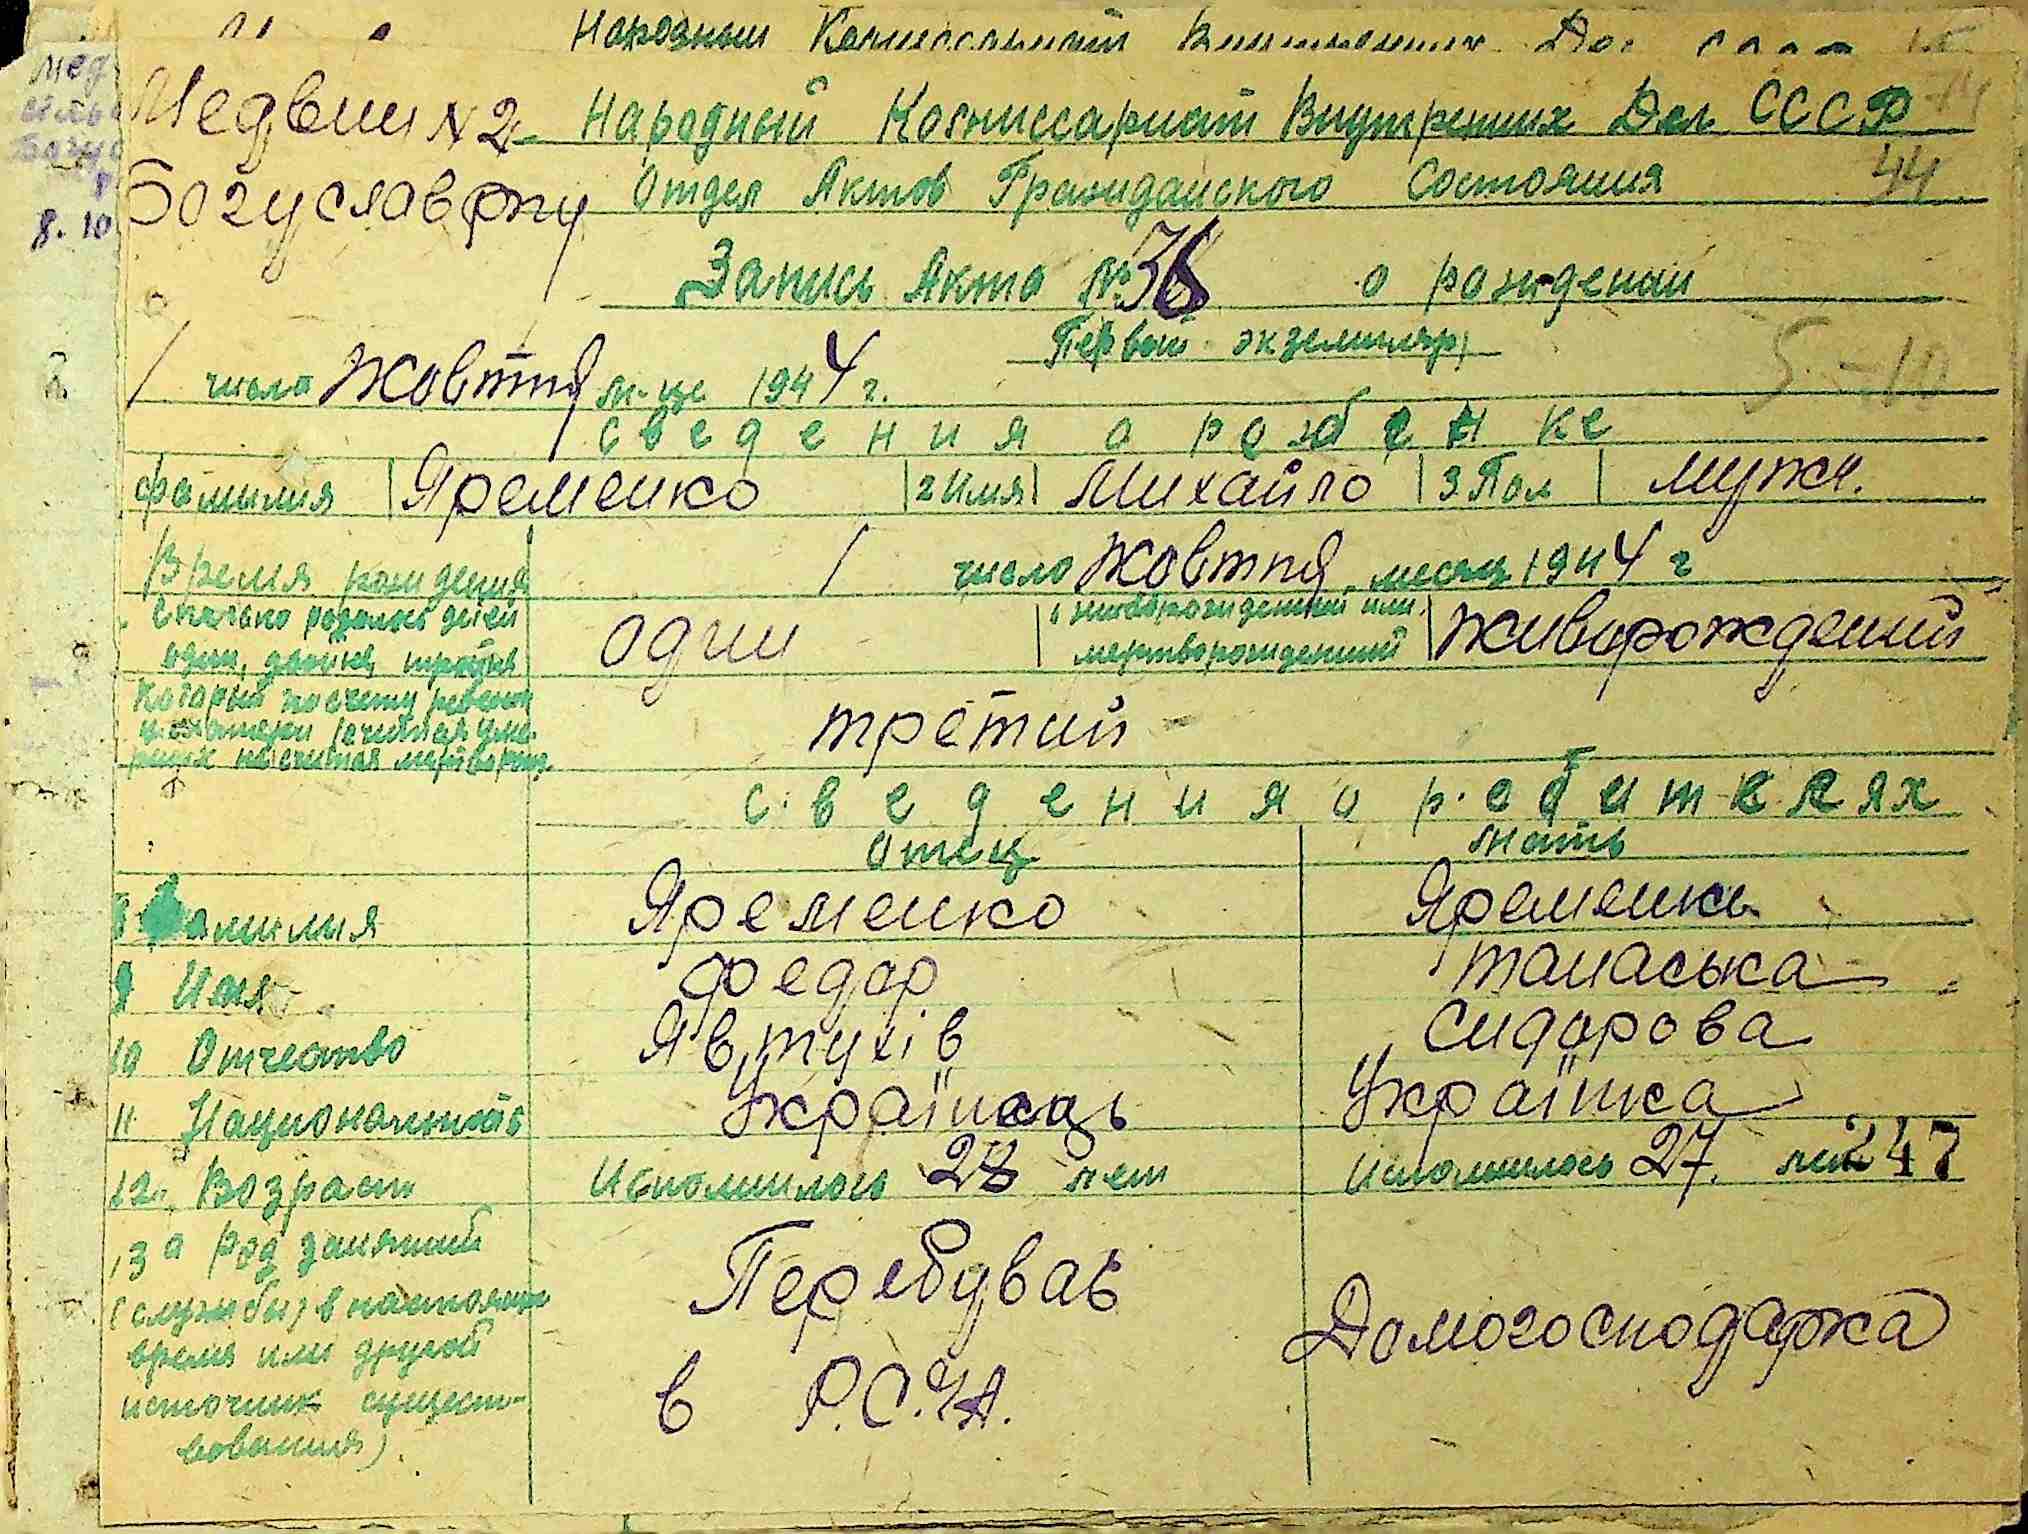 Народный Комиссариат Внутренних Дел СССР
Мед
8. 10
Медвин N 2
Народный Комиссариат Внутренних Дел СССР
44
Богуслав рну
Отдел Актов Гражданского Состояния
Запись Акта № 38 о рождении
Первый экземпляр
1 числа жовтня м-це 1944 г.
5 - 10
сведения о ребенке
фамилия Яременко 2 Имя Михайло 3. Пол мужч.
Время рождения 1 число жовтня месяц 1944 г
Сколько родилось детей
один, двойня, тройня
один
живорожденный или
мертворожденный
живорожденний
Который по счету ребенок
у матери (считая уме-
рших не считая мертворож.
третий
сведения о родителях
Отец мать
8 Фамилия Яременко Яременко
9 Имя Федор Танаська
10 Отчество Явтухів Сидорова
11. Национальность Українець Українка
12. Возраст Исполнилось 28 лет Исполнилось 27. лет
247
13 а род занятий
(службы) в настоящее
время или другой
источник сущест-
вования).
Перебуває
в Р.С.Ч.А.
Домогосподарка